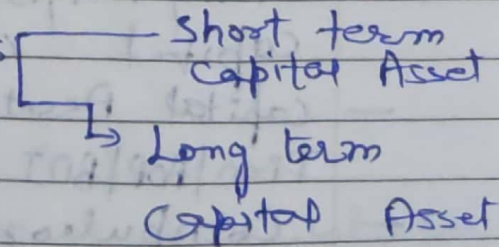 Short term
Capital Asset
Long term
Capital Asset